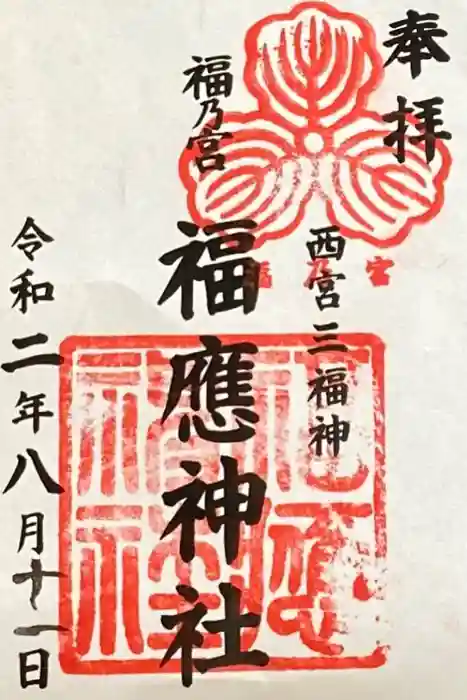 奉拝
西宮三福神
福乃宮
福應神社
令和二年八月十一日
福乃宮